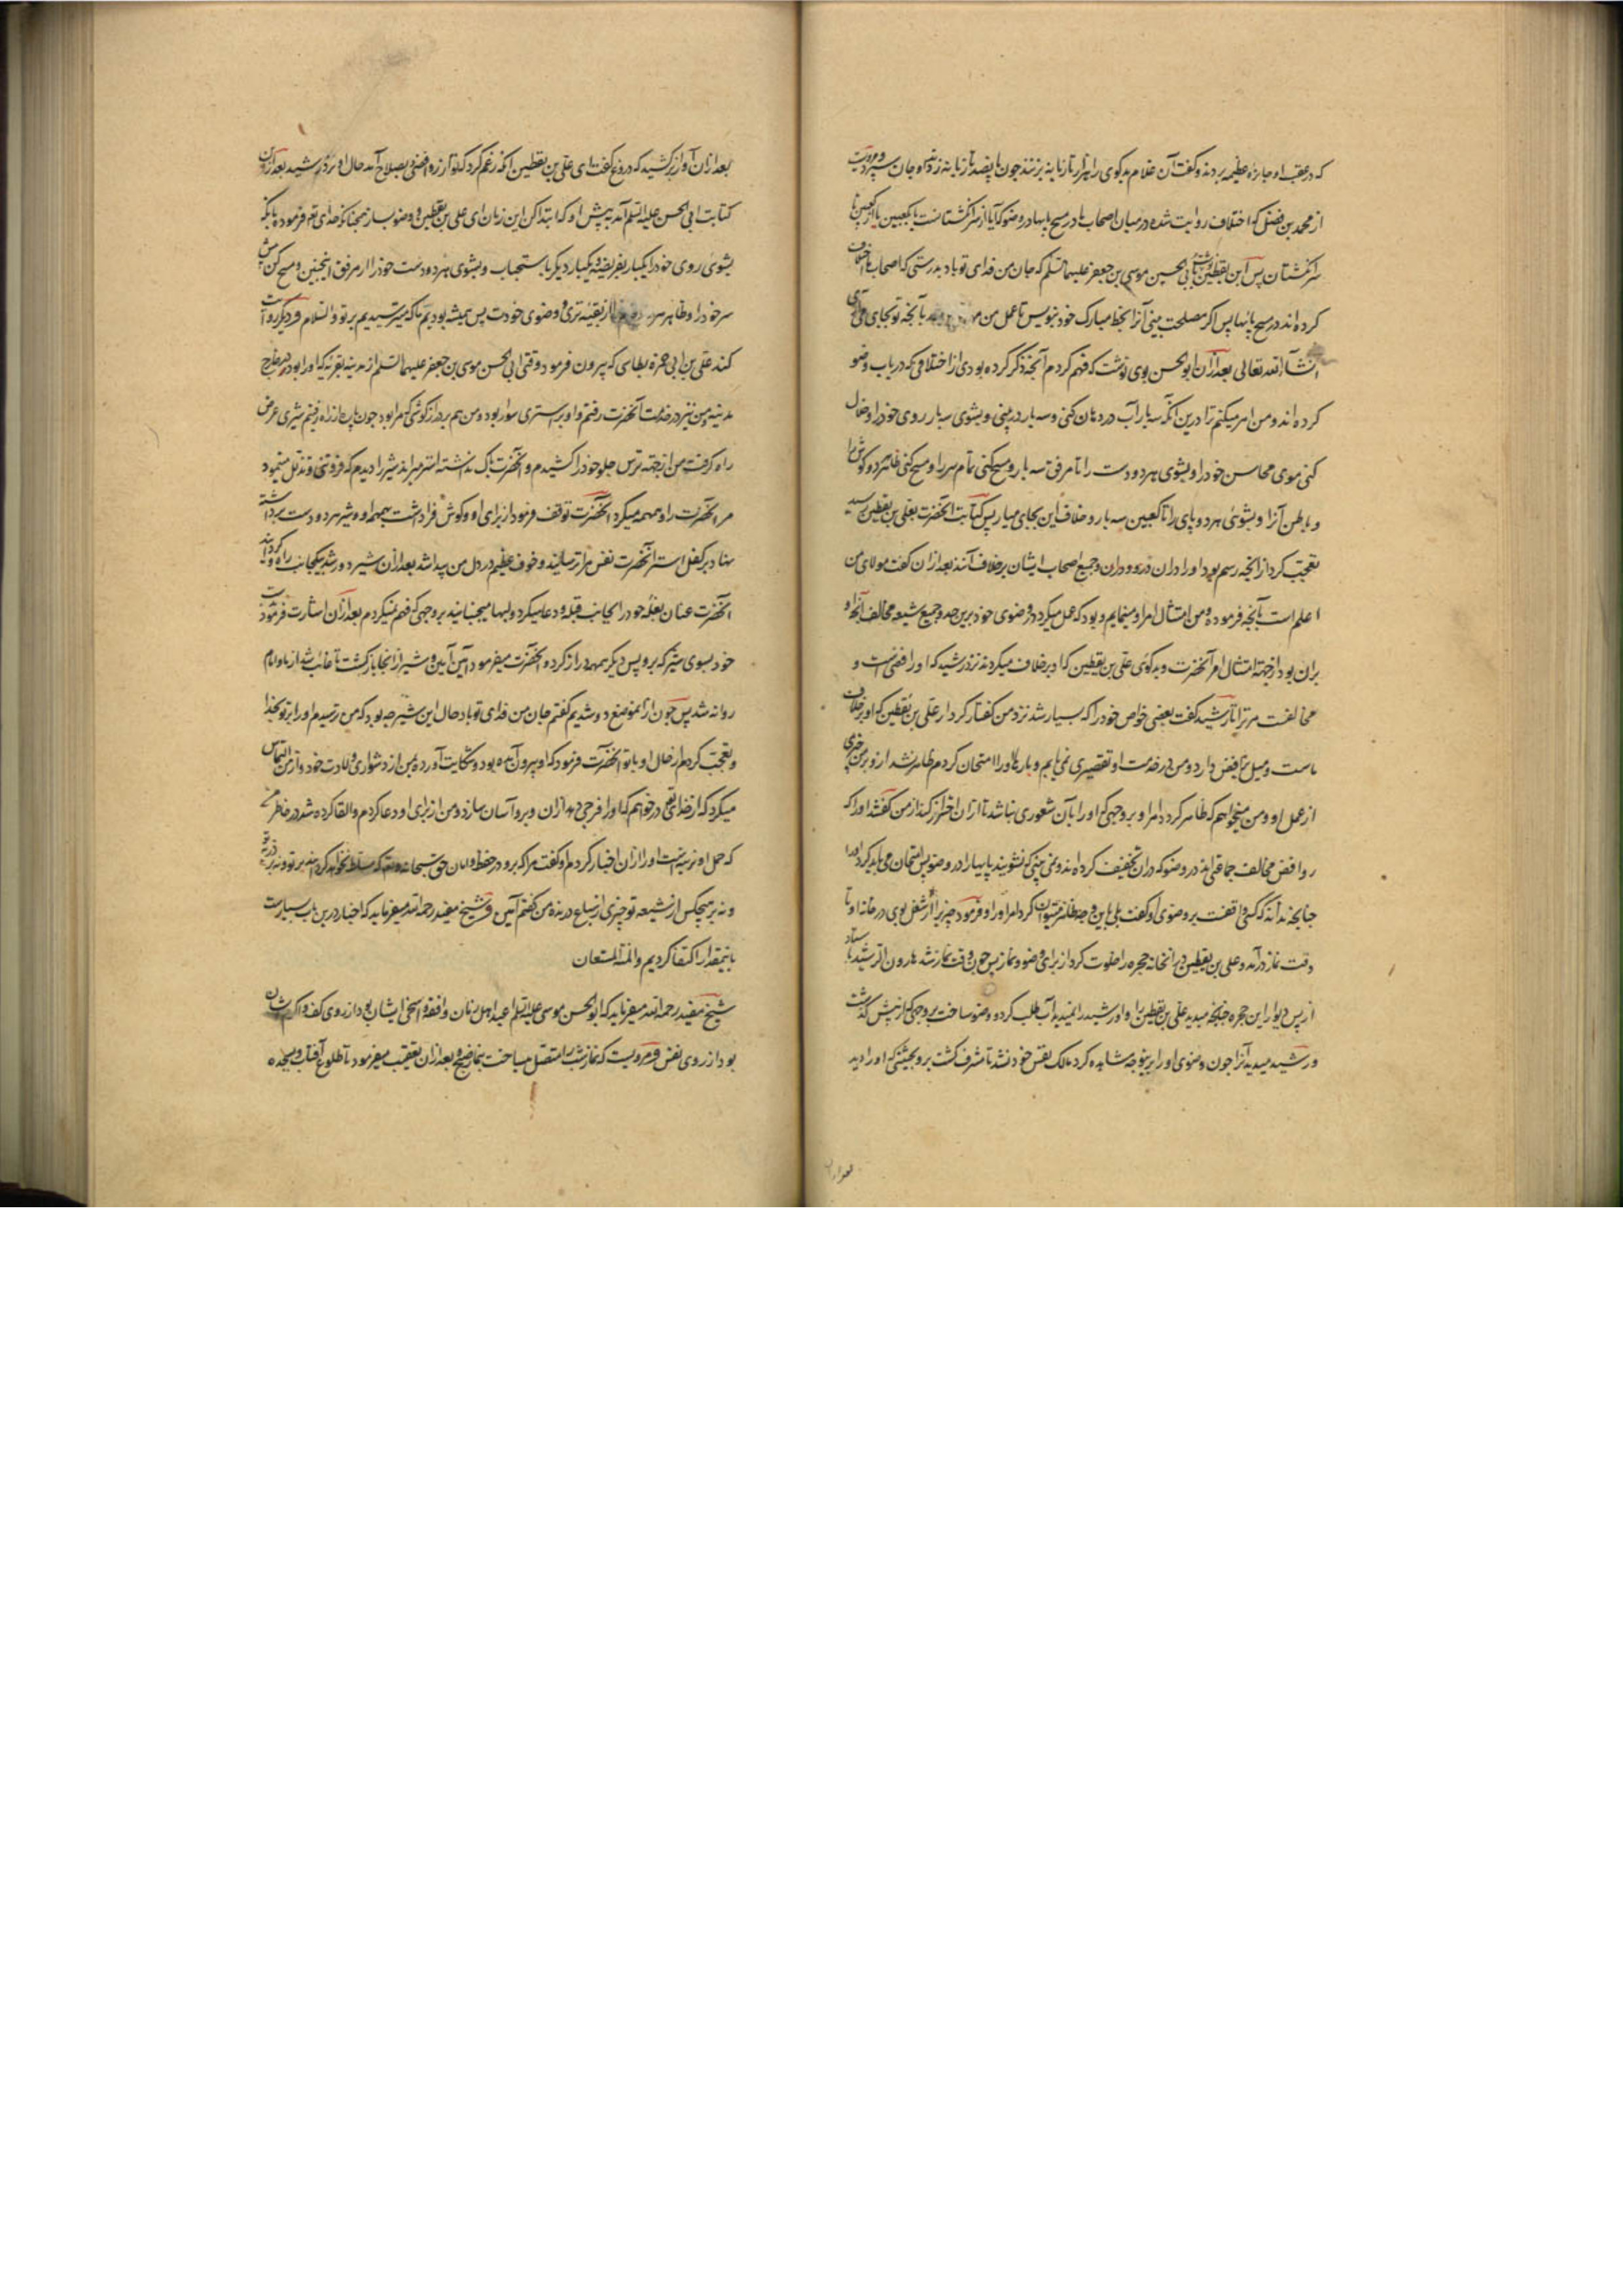 که در عقب او جایزه عظیمه بردند و گفت آن غلام بدگوی را هزار تازیانه بزنند چون پانصد تازیانه زدندش او جان سپرد و مرویست
از محمد بن فضل که اختلاف روایت شده در میان اصحاب ما در مسح پایها در وضو که آیا از سر انگشتانست تا کعبین یا از کعبین تا
سر انگشتان پس ابن یقطین نوشت بابی الحسن موسی بن جعفر علیهما السلم که جان من فدای تو باد بدرستی که اصحاب ما اختلاف
کرده اند در مسح پایها پس اگر مصلحت بینی آنرا بخط مبارک خود بنویس تا عمل من بآنچه تو بجای می آری
انشاء الله تعالی بعد ازان ابو الحسن بوی نوشت که فهم کردم آنچه ذکر کرده بودی از اختلافی که در باب وضو
کرده اند و من امر میکنم ترا درین آنکه سه بار آب در دهان کنی و سه بار در بینی و بشوی سه بار روی خود را و خلال
کنی موی محاسن خود را و بشوی هر دو دست را تا مرفق سه بار و مسح کنی تمام سر را و مسح کنی ظاهر دو گوش را
و باطن آنرا و بشوئی هر دو پای را تا کعبین سه بار و خلاف این بجای میار پس کتابت آنحضرت بعلی بن یقطین رسید
تعجب کرد از آنچه رسم بود او را دران و جمیع اصحاب ایشان بر خلاف آنند بعد ازان گفت مولای من
اعلم است بآنچه فرموده و من امتثال امر او مینمایم و بود که عمل میکرد در وضوی خود برین حد و جمیع شیعه مخالف آنچه او
بران بود از جهة امتثال امر آنحضرت و بدگوئی علی بن یقطین که ادر خلاف میکردند نزد رشید که او رافضی است و
مخالفت مر ترا تا رشید گفت بعضی خواص خود را که بسیار شد نزد من گفتار کردار علی بن یقطین که او بر خلاف
ماست و میل برافض دارد و من در خدمت او تقصیری نمی یابم و بارها او را امتحان کردم ظاهر نشد ازو بر من چیزی
از عمل او و من میخواهم که ظاهر کرد امر او بر وجهی که او را بآن شعوری نباشد تا ازان احتراز کند از من گفتند او را که
روافض مخالف جماعتی اند در وضو که دران تخفیف کرده اند و نمی بینی که نشویند پایها را در وضو پس امتحان می باید کرد او را
چنانچه نداند که کسی واقفست بر وضوی او گفت بلی باین وجه ظاهر میتوان کرد امر او را و فرمود چیزیرا از شغل بوی در خانه او تا
وقت نماز درآمد و علی بن یقطین در آنخانه حجره را خلوت کرد از برای وضو و نماز پس چون وقت نماز شد هارون الرشید بایستاد
از پس دیوار این حجره چنانچه میدید علی بن یقطین را و او رشید را نمیدید آب طلب کرد و وضو ساخت بر وجهی که از پیش گذشت
و رشید میدید آنرا چون وضوی او را برینوجه مشاهده کرد مالک نفس خود نشد تا مشرف گشت برو بحیثیتی که او را دید
بعد ازان
بعد ازان آواز برکشید که دروغ گفت ای علی بن یقطین آنکه زعم کرد که تو از روافضی و بصلاح آمد حال او نزد رشید بعد ازان
کتابت ابی الحسن علیه السلم آمد به پیش او که ابتدا کن این زمان ای علی بن یقطین و وضو بساز همچنانکه خدای تعم فرموده بآنکه
بشوئی روی خود را یکبار بفریضه و یکبار دیگر باستحباب و بشوی هر دو دست خود را از مرفق اینچنین و مسح کن پیش
سر خود را و ظاهر از بقیه تری وضوی خودت پس همیشه بودیم تا که میترسیدیم بر تو والسلام و دیگر روایت
کند علی بن ابی حمزه بطاسی که بیرون فرمود وقتی ابی الحسن موسی بن جعفر علیهما السلم از مدینه بقریه که او را بود در خارج
مدینه و من نیز در خدمت آنحضرت رفتم و او بر استری سوار بود و من هم بر درازگوشی که مرا بود چون پاره از راه رفتیم شیری عرض
راه گرفت من از جهة ترس جلو خود را کشیدم و آنحضرت باک نداشته استر میراند شیر را دیدم که فروتنی و تذلل مینمود
مر آنحضرت را و همهمه میکرد آنحضرت توقف فرمود از برای او و گوش فرا داشت بهمهمه او و شیر هر دو دست برداشته
نهاد بر کفل استر آنحضرت نفس مرا ترسانید و خوف عظیم در دل من پیدا شد بعد ازان شیر دور شد بیکجانب راه و گردانید
آنحضرت عنان بغله خود را بجانب قبله و دعا میکرد و لبها میجنبانید بر وجهی که فهم نمیکردم بعد ازان اشارت فرمود بدست
خود بسوی شیر که برو پس دیگر همهمه دراز کرد و آنحضرت میفرمود آمین آمین و شیر از آنجا بازگشت تا غائب شد از ما و امام
روانه شد پس چون ازانموضع دور شدیم گفتم جان من فدای تو باد حال این شیر چه بود که من ترسیدم او را بر تو بخدا
و تعجب کردم از حال او با تو آنحضرت فرمود که او بیرون آمده بود و شکایت آورده بمن از دشواری ولادت خود و از من التماس
میکرد که از خدای تعم درخواهم که او را فرجی دهد ازان و برو آسان سازد و من از برای او دعا کردم و القا کرده شد در خاطر من
که حمل او نرینه است او را ازان اخبار کردم او گفت مرا که برو در حفظ و امان حق سبحانه و تعم که مسلط نخواهد گردانید بر تو و نه بر ذریه تو
و نه بر هیچکس از شیعه تو چیزی از سباع درنده من گفتم آمین و شیخ مفید رحمه الله میفرماید که اخبار درین باب بسیارست
باینمقدار اکتفا کردیم والله المستعان
شیخ مفید رحمه الله میفرماید که ابو الحسن موسی علیه السلم اعبد اهل زمان و افقه و اسخی ایشان بود از روی کف و اکرم ایشان
بود از روی نفس و مرویست که نماز شب را متصل میساخت بنماز صبح و بعد ازان تعقیب میفرمود تا طلوع آفتاب و بسجده